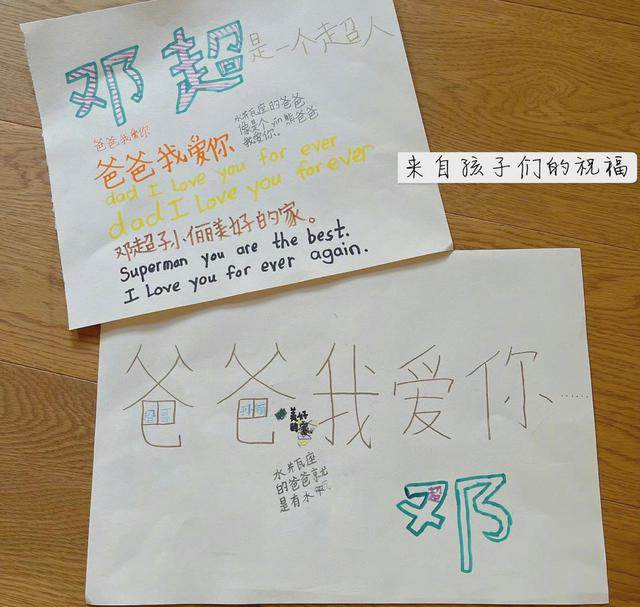 邓超是一个超人
水井瓦座的爸爸
像是个yin熊爸爸
我爱你..
爸爸我爱你
爸爸我爱你
dad I love you for ever
dad I love you forever
邓超孙小俪美好的家。
Superman you are the best.
I Love you for ever again.
来自孩子们的祝福
爸爸我爱你……
美好
的家
水井瓦座
的爸爸就
是有水平
邓
超